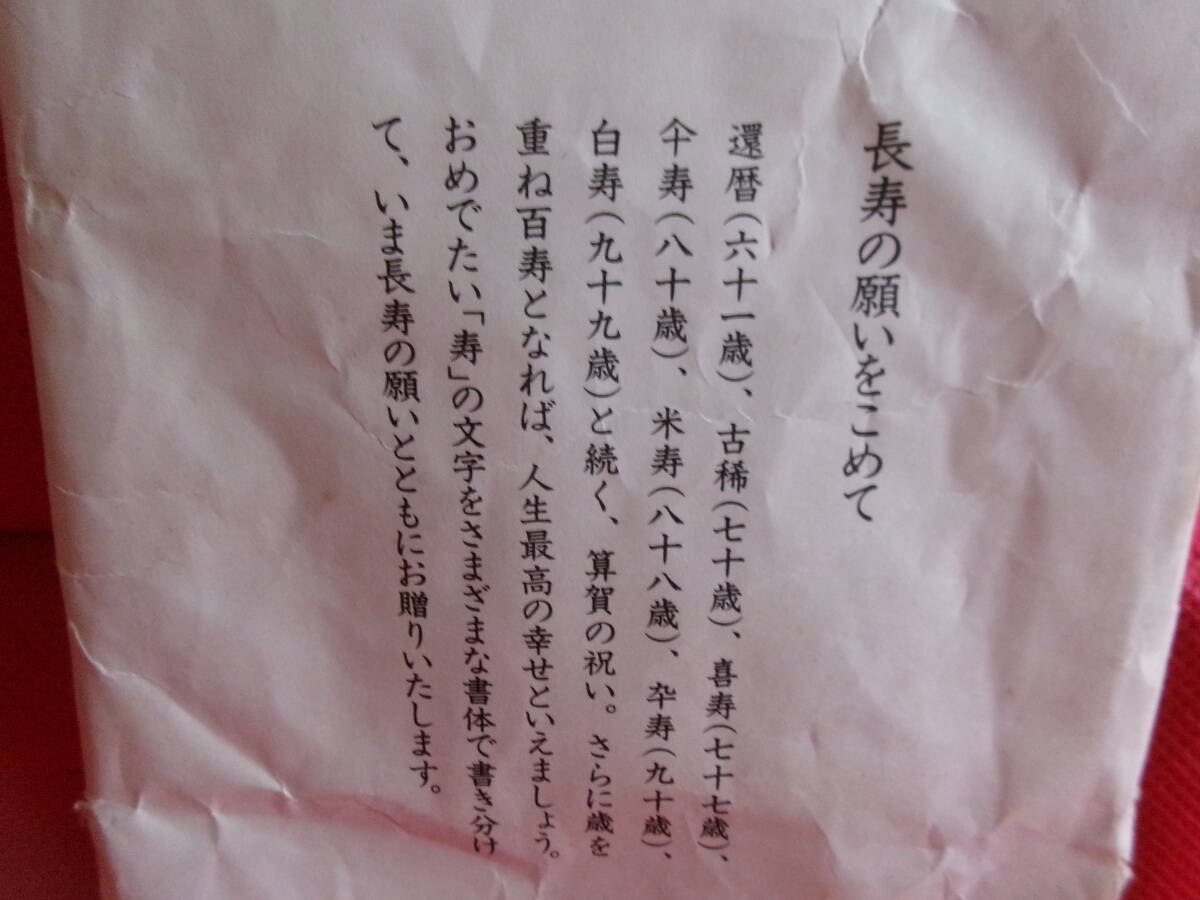 長寿の願いをこめて
還暦(六十一歳)、古稀(七十歳)、喜寿(七十七歳)、
仐寿(八十歳)、米寿(八十八歳)、卆寿(九十歳)、
白寿(九十九歳)と続く、算賀の祝い。さらに歳を
重ね百寿となれば、人生最高の幸せといえましょう。
おめでたい「寿」の文字をさまざまな書体で書き分け
て、いま長寿の願いとともにお贈りいたします。